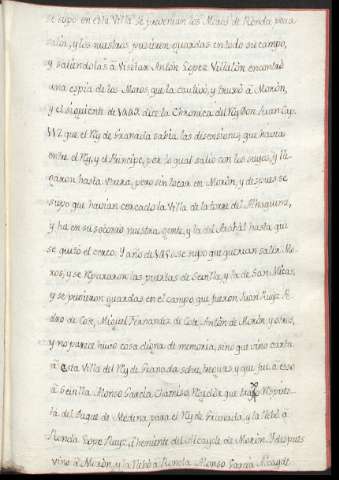 se supo en esta Villa se prevenian los Moros de Ronda para
salir, y los nuestros pusieron guardas en todo su campo,
y saliendolas à Visitar Anton Lopez Villalon encontrò
una espia de los Moros, que la cautivò, y truxo à Moròn,
y el siguiente de dice la Chronica del Rey Don Juan Cap.
que el Rey de Granada sabia las disensiones que havia
entre el Rey, y el Principe, por lo qual salio con los suyos, y lle
garon hasta Utrera, pero sin tocar en Moròn, y despues se
supo que havian cercado la Villa de la torre del Alhaquime,
y fue en su socorro nuestra gente, y la del Arahàl hasta que
se quitò el cerco. Y año de se supo que querian salir Mo
ros, y se repararon las puertas de Sevilla, y la de San Miguel,
y se pusieron guardas en el campo, que fueron Juan Ruiz
dro de Cote, Miguel Fernandez de Cote Anton de Moròn, y otros,
y no parece huvo cosa digna de memoria, sino que vino carta
à esta Villa del Rey de Granada sobre treguas y que fuè à esso
à Sevilla Alonso Garcia Ramiro Regidor que traxo Respues
ta del Duque de Medina para el Rey de Granada, y la llebò à
Ronda Lope Ruiz, Theniente del Alcayde de Moròn. Y despues
vino à Moròn, y la llebò à Ronda Alonso Garcia Alcayde